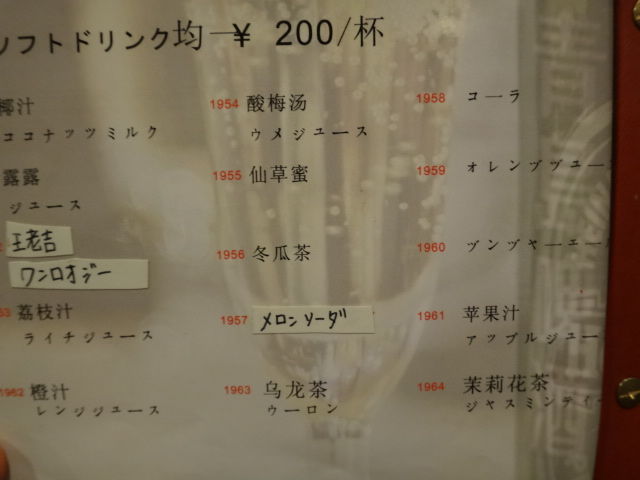 ソフトドリンク均一 ¥ 200/杯
椰汁
ココナッツミルク
露露
ジュース
王老吉
ワンロオジー
荔枝汁
ライチジュース
1962 橙汁
レンジジュース
1954 酸梅汤
ウメジュース
1955 仙草蜜
1956 冬瓜茶
1957 メロンソーダ
1963 乌龙茶
ウーロン
1958 コーラ
1959 オレンヅヅュー
1960 ヅンヅャーエー
1961 苹果汁
アップルジュー
1964 茉莉花茶
ジャスミンティ